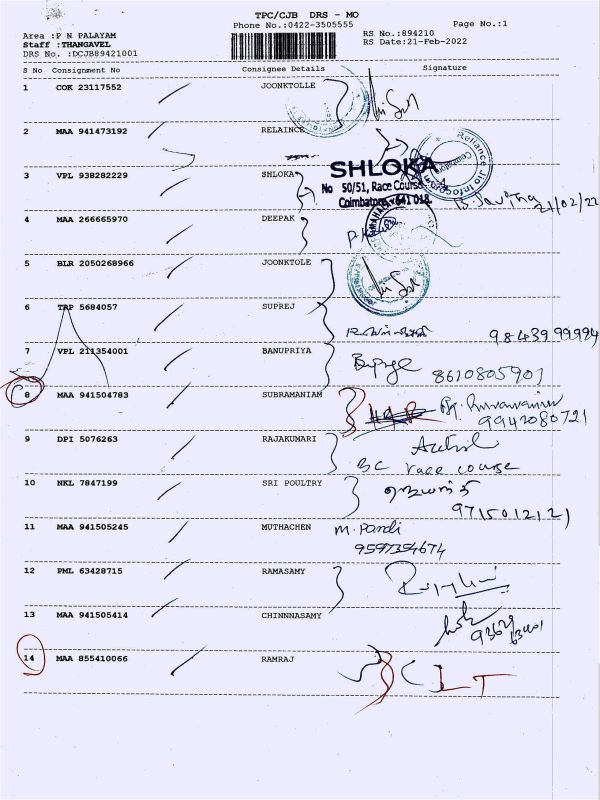 TPC/CJB DRS - MO
Phone No.:0422-3505555
Page No.:1
Area :P N PALAYAM
Staff :THANGAVEL
DRS No. :DCJB89421001
RS No.:894210
RS Date:21-Feb-2022
S No Consignment No Consignee Details Signature
1 COK 23117552 JOONKTOLLE
2 MAA 941473192 RELAINCE
Reliance Jio
3 VPL 938282229 SHLOKA
SHLOKA
No 50/51, Race Course
Coimbatore - 641 018.
21/02/22
4 MAA 266665970 DEEPAK
5 BLR 2050268966 JOONKTOLE
6 TRP 5684057 SUPREJ
9843999994
7 VPL 211354001 BANUPRIYA
8610805901
8 MAA 941504783 SUBRAMANIAM
9942080721
9 DPI 5076263 RAJAKUMARI
SC race course
10 NKL 7847199 SRI POULTRY
9715012121
11 MAA 941505245 MUTHACHEN M. Pandi
9597354674
12 PML 63428715 RAMASAMY
13 MAA 941505414 CHINNNASAMY
14 MAA 855410066 RAMRAJ